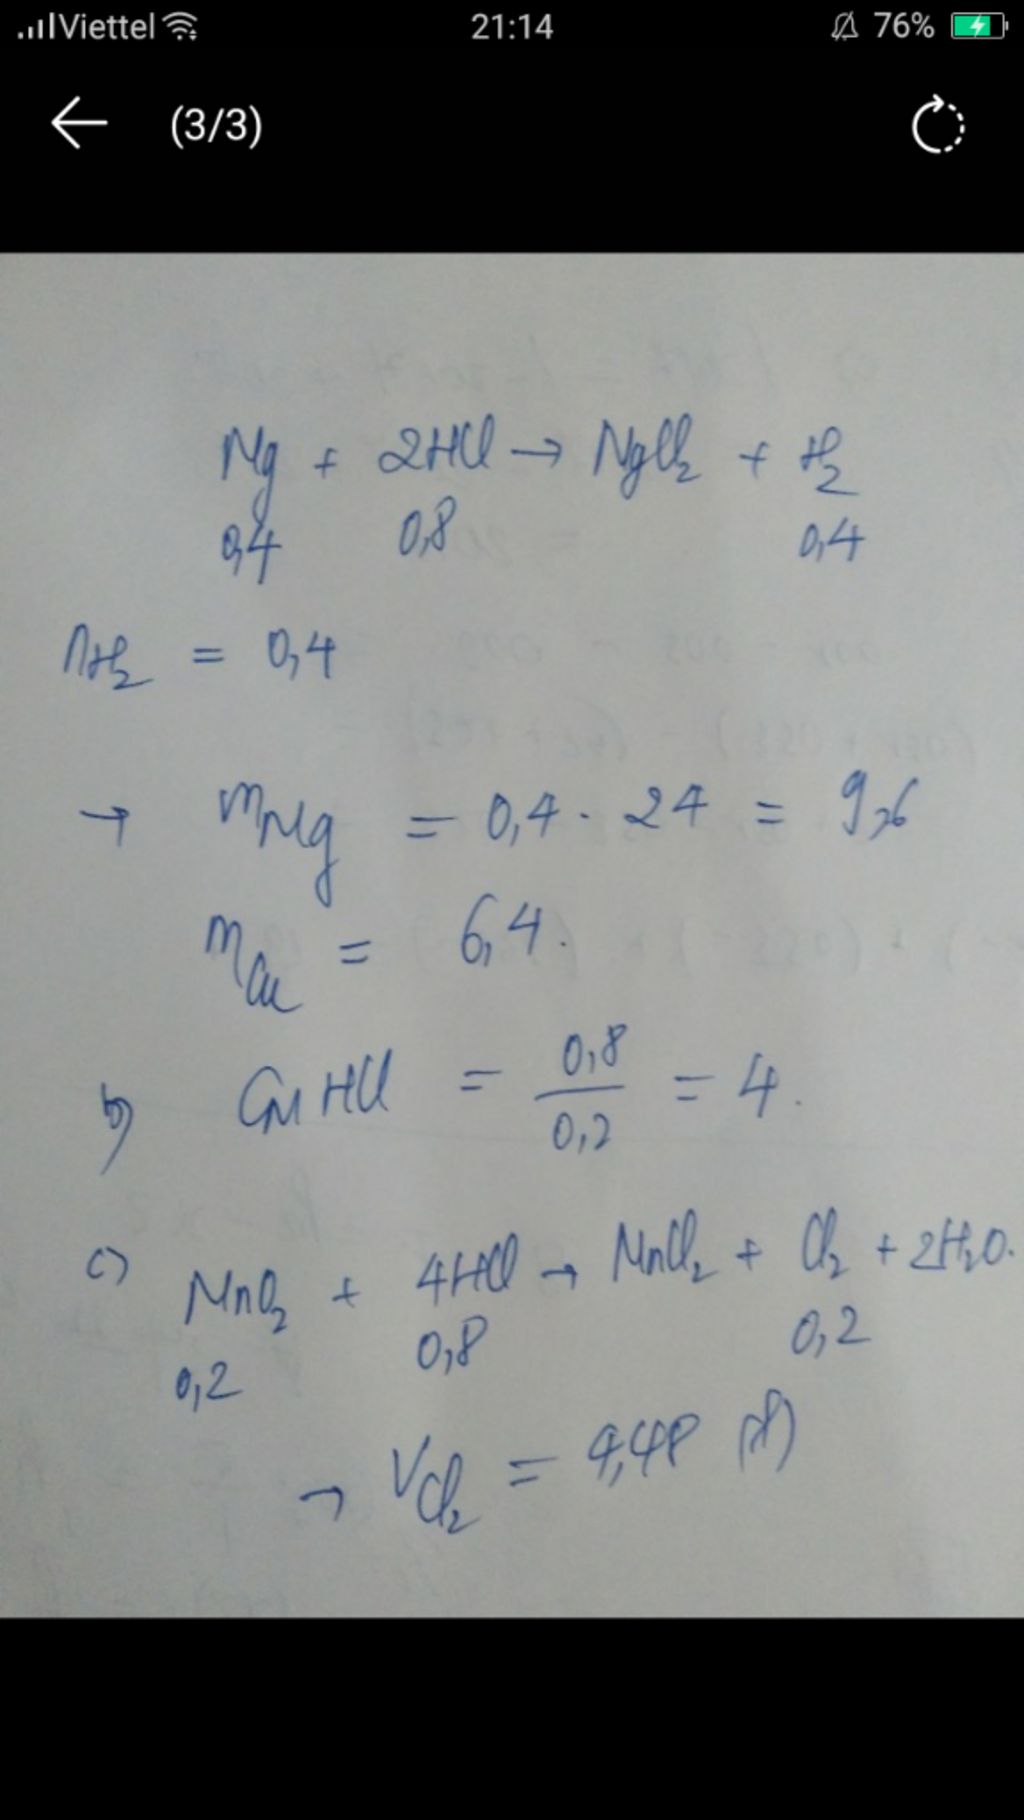 Viettel 21:14 76%
(3/3)
Mg + 2HCl → MgCl₂ + H₂
0,4 0,8 0,4
nH₂ = 0,4
→ mMg = 0,4 . 24 = 9,6
mCu = 6,4.
b) CM HCl = 0,8/0,2 = 4.
c) MnO₂ + 4HCl → MnCl₂ + Cl₂ + 2H₂O.
0,2 0,8 0,2
→ VCl₂ = 4,48 (l)